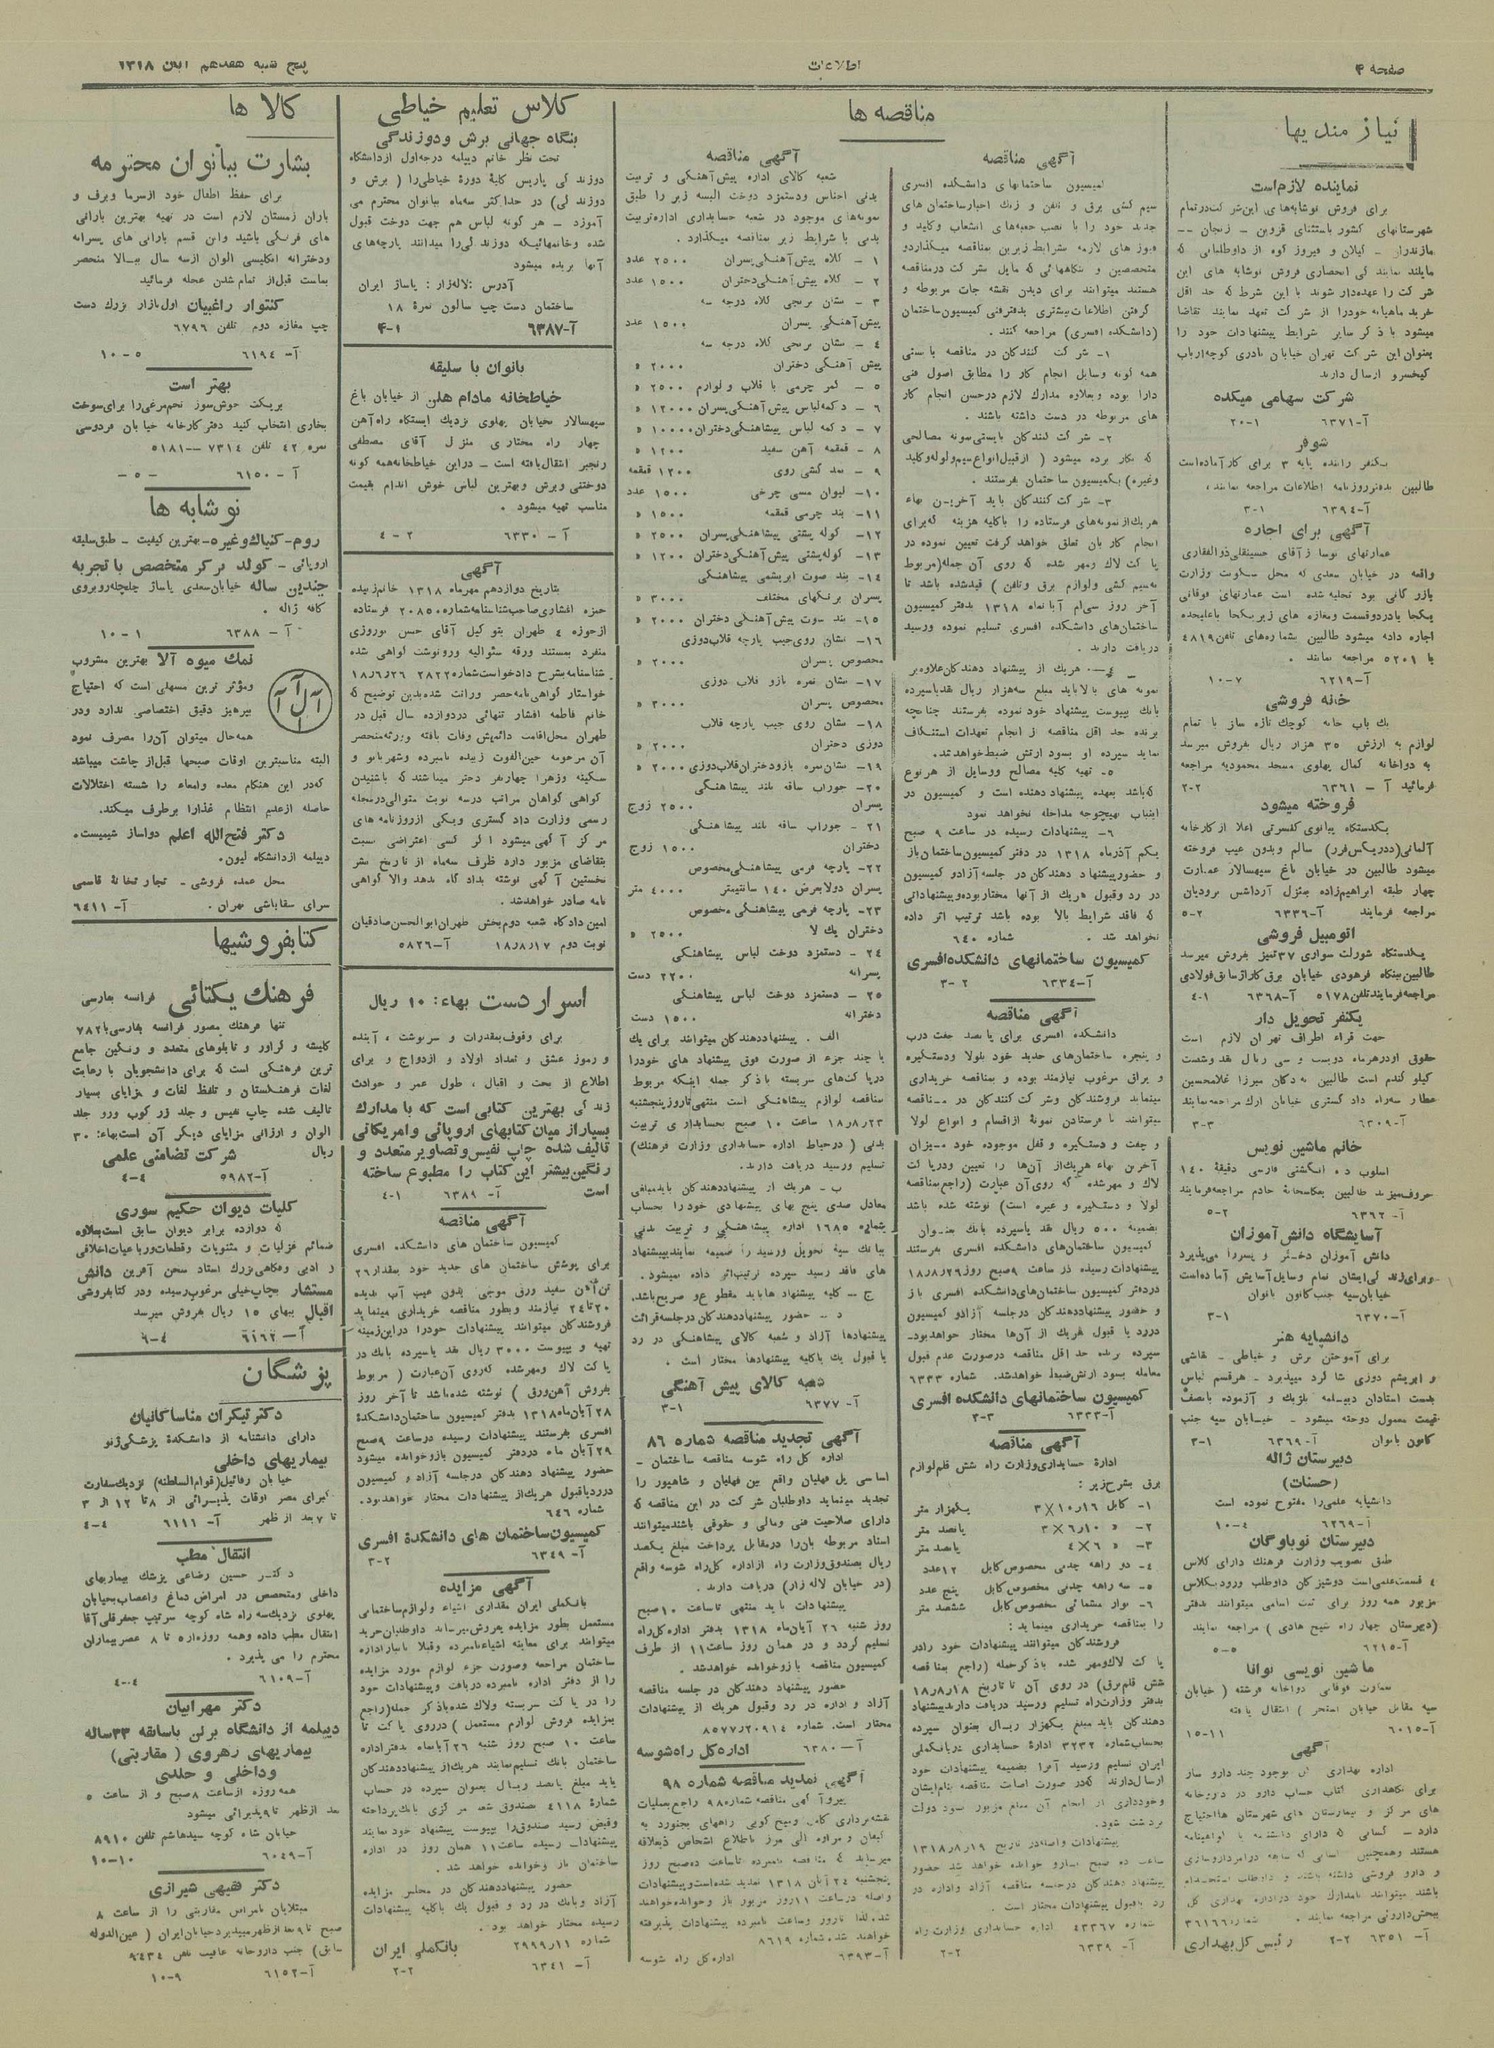 صفحه ۴
اطلاعات
پنج شنبه هفدهم آبان ۱۳۱۸
نیازمندیها
نماینده لازم است
برای فروش نوشابه‌های این شرکت در تمام
شهرستانهای کشور باستثنای قزوین - زنجان -
مازندران - گیلان و فیروز کوه از داوطلبانی که
مایلند نمایندگی انحصاری فروش نوشابه های این
شرکت را عهده‌دار شوند با این شرط که حد اقل
خرید ماهیانه خود را از شرکت تعهد نمایند تقاضا
میشود با ذکر سایر شرایط پیشنهادات خود را
بعنوان این شرکت تهران خیابان نادری کوچه ارباب
کیخسرو ارسال دارند
شرکت سهامی میکده
آ-۶۳۷۱ ۱-۲۰
شوفر
یکنفر راننده پایه ۳ برای کار آماده است
طالبین بدفتر روزنامه اطلاعات مراجعه نمایند.
آ-۶۳۹۴ ۱-۳
آگهی برای اجاره
عمارتهای نوساز آقای حسینقلی ذوالفقاری
واقعه در خیابان سعدی که محل سکونت وزارت
بازرگانی بود تخلیه شده است عمارتهای فوقانی
یکجا یا در دو قسمت و مغازه های زیر یکجا یا علیحده
اجاره داده میشود طالبین بشماره‌های تلفن ۴۸۱۹
یا ۵۲۰۱ مراجعه نمایند.
آ-۶۲۱۹ ۷-۱۰
خانه فروشی
یک باب خانه کوچک تازه ساز با تمام
لوازم به ارزش ۳۵ هزار ریال بفروش میرسد
به دواخانه کمال پهلوی مسجد محمودیه مراجعه
فرمائید آ - ۶۳۶۱ ۲-۲
فروخته میشود
یکدستگاه پیانوی کنسرتی اعلا از کارخانه
آلمانی (ددریکس فرر) سالم و بدون عیب فروخته
میشود طالبین در خیابان باغ سپهسالار عمارت
چهار طبقه ابراهیم‌زاده بمنزل آرداشس برودیان
مراجعه فرمایند آ-۶۳۳۶ ۲-۵
اتومبیل فروشی
یکدستگاه شورلت سواری ۳۷ تمیز بفروش میرسد
طالبین ببنگاه فرهودی خیابان برق کاراژ سابق فولادی
مراجعه فرمایند تلفن ۵۱۷۸ آ-۶۳۶۸ ۱-۴
یکنفر تحویل دار
جهت قراء اطراف تهران لازم است
حقوق او در هرماه دویست و سی ریال نقد و شصت
کیلو گندم است طالبین به دکان میرزا غلامحسین
عطار سه‌راه دادگستری خیابان ارک مراجعه نمایند
آ-۶۳۰۹ ۳-۳
خانم ماشین نویس
اسلوب ده انگشتی فارسی دقیقهٔ ۱۴۰
حروف میزند طالبین بعکاسخانهٔ خادم مراجعه فرمایند
آ-۶۳۶۲ ۲-۵
آسایشگاه دانش آموزان
دانش آموزان دختر و پسر را می‌پذیرد
و برای زندگی ایشان تمام وسایل آسایش آماده است
خیابان سپه جنب کانون بانوان
آ-۶۳۷۰ ۱-۳
دانشپایه هنر
برای آموختن برش و خیاطی - نقاشی
و ابریشم دوزی شاگرد میپذیرد - هرقسم لباس
بدست استادان دیپلمه بلژیک و آزموده بانصف
قیمت معمول دوخته میشود - خیابان سپه جنب
کانون بانوان آ-۶۳۶۹ ۱-۳
دبیرستان ژاله
(حسنات)
دانشپایه علمی را مفتوح نموده است
آ-۶۲۶۹ ۴-۱۰
دبیرستان نوباوگان
طبق تصویب وزارت فرهنگ دارای کلاس
۴ قسمت علمی است دوشیزگان داوطلب ورود بکلاس
مزبور همه روز برای ثبت اسامی میتوانند بدفتر
(دبیرستان چهار راه شیخ هادی) مراجعه نمایند
آ-۶۲۱۵ ۵-۵
ماشین نویسی توانا
بعمارت فوقانی دواخانه فرشته (خیابان
سپه مقابل خیابان استخر) انتقال یافته
آ-۶۰۱۵ ۱۱-۱۵
آگهی
اداره بهداری کل بوجود چند دارو ساز
برای نگاهداری کتاب حساب دارو در داروخانه
های مرکز و بیمارستان های شهرستان ها احتیاج
دارد - کسانی که دارای دانشنامه یا گواهینامه
هستند وهمچنین کسانی که سابقه در امر داروسازی
و دارو فروشی داشته باشند و داوطلب استخدام
باشند میتوانند بامدارک خود در اداره بهداری کل
ببخش داروئی مراجعه نمایند. شماره ۳۶۱۶۶
آ- ۶۳۵۱ ۲-۲ رئیس کل بهداری
مناقصه ها
آگهی مناقصه
کمیسیون ساختمانهای دانشکده افسری
سیم کشی برق و تلفن و زنگ اخبار ساختمان های
جدید خود را با نصب جعبه‌های انشعاب و کلید و
فیوز های لازمه بشرایط زیرین بمناقصه میگذارد و
متخصصین و بنگاههائی که مایل بشرکت در مناقصه
هستند میتوانند برای دیدن نقشه جات مربوطه و
گرفتن اطلاعات بیشتری بدفتر فنی کمیسیون ساختمان
(دانشکده افسری) مراجعه کنند.
۱- شرکت کنندگان در مناقصه بایستی
همه گونه وسایل انجام کار را مطابق اصول فنی
دارا بوده و بعلاوه مدارک لازم در حسن انجام کار
های مربوطه در دست داشته باشند.
۲- شرکت کنندگان بایستی نمونه مصالحی
که بکار برده میشود (از قبیل انواع سیم و لوله و کلید
وغیره) بکمیسیون ساختمان بفرستند.
۳- شرکت کنندگان باید آخرین بهاء
هریک از نمونه‌های فرستاده را باکلیه هزینه که برای
انجام کار بآن تعلق خواهد گرفت تعیین نموده در
پاکت لاک و مهر شده که روی آن جمله (مربوط
به سیم کشی و لوازم برق و تلفن) قید شده باشد تا
آخر روز سی‌ام آبانماه ۱۳۱۸ بدفتر کمیسیون
ساختمان‌های دانشکده افسری تسلیم نموده و رسید
دریافت دارند.
۴- هریک از پیشنهاد دهندگان علاوه بر
نمونه های بالا باید مبلغ سه‌هزار ریال نقد یا سپرده
بانک بپیوست پیشنهاد خود نموده بفرستند چنانچه
برنده حد اقل مناقصه از انجام تعهدات استنکاف
نماید سپرده او بسود ارتش ضبط خواهد شد.
۵- تهیه کلیه مصالح و وسایل از هر نوع
که باشد بعهده پیشنهاد دهنده است و کمیسیون در
اینباب بهیچوجه مداخله نخواهد نمود
۶- پیشنهادات رسیده در ساعت ۹ صبح
یکم آذرماه ۱۳۱۸ در دفتر کمیسیون ساختمان باز
و حضور پیشنهاد دهندگان در جلسه آزاد و کمیسیون
در رد و قبول هریک از آنها مختار بوده و پیشنهاداتی
که فاقد شرایط بالا بوده باشد ترتیب اثر داده
نخواهد شد. شماره ۶۴۰
کمیسیون ساختمانهای دانشکده افسری
آ-۶۳۳۴ ۲-۳
آگهی مناقصه
دانشکده افسری برای پانصد جفت درب
و پنجره ساختمان‌های جدید خود بلولا و دستگیره
و یراق مرغوب نیازمند بوده و بمناقصه خریداری
مینماید فروشندگان و شرکت کنندگان در مناقصه
میتوانند با فرستادن نمونهٔ از اقسام و انواع لولا
و چفت و دستگیره و قفل موجوده خود میزان
آخرین بهاء هریک از آن‌ها را تعیین و در پاکت
لاک و مهرشده که روی آن عبارت (راجع بمناقصه
لولا و دستگیره و غیره است) نوشته شده باشد
بضمیمه ۵۰۰ ریال نقد یا سپرده بانک بعنوان
کمیسیون ساختمان‌های دانشکده افسری بفرستند
پیشنهادات رسیده در ساعت ۹ صبح روز ۱۸/۸/۲۹
در دفتر کمیسیون ساختمان‌های دانشکده افسری باز
و حضور پیشنهاد دهندگان در جلسه آزاد و کمیسیون
در رد یا قبول هریک از آن‌ها مختار خواهد بود.
سپرده برنده حد اقل مناقصه در صورت عدم قبول
معامله بسود ارتش ضبط خواهد شد. شماره ۶۳۳
کمیسیون ساختمانهای دانشکده افسری
آ-۶۳۳۳ ۳-۳
آگهی مناقصه
ادارهٔ حسابداری وزارت راه شش قلم لوازم
برق بشرح زیر:
۱- کابل ۱۶ر۱۰×۳ یکهزار متر
۲- » ۱۰ر۶×۳ پانصد متر
۳- » ۶×۴ پانصد متر
۴- دو راهه چدنی مخصوص کابل ۱۲ عدد
۵- سه راهه چدنی مخصوص کابل پنج عدد
۶- نوار مشمائی مخصوص کابل ششصد متر
را بمناقصه خریداری مینماید:
فروشندگان میتوانند پیشنهادات خود را در
پاکت لاک ومهر شده با ذکر جمله (راجع بمناقصه
شش قلم برق) در روی آن تا تاریخ ۱۸/۸/۱۸
بدفتر وزارت راه تسلیم ورسید دریافت دارند پیشنهاد
دهندگان باید مبلغ یکهزار ریال بعنوان سپرده
بحساب شماره ۳۲۳۲ ادارهٔ حسابداری در بانک ملی
ایران تسلیم ورسید آنرا بضمیمه پیشنهادات خود
ارسال دارند که در صورت اصابت مناقصه بنام ایشان
وخودداری از انجام آن مبلغ مزبور بسود دولت
برداشت شود.
پیشنهادات واصله در تاریخ ۱۳۱۸/۸/۱۹
ساعت ده صبح باز و خوانده خواهد شد حضور
پیشنهاد دهندگان در جلسه مناقصه آزاد و اداره در
رد یا قبول پیشنهادات مختار است.
شماره ۴۳۳۶۷ اداره حسابداری وزارت راه
آ- ۶۳۳۹ ۲-۲
آگهی مناقصه
شعبه کالای اداره پیش آهنگی و تربیت
بدنی اجناس و دستمزد دوخت البسه زیر را طبق
نمونه‌های موجود در شعبه حسابداری اداره تربیت
بدنی با شرایط زیر بمناقصه میگذارد.
۱- کلاه پیش آهنگی پسران ۲۵۰۰ عدد
۲- کلاه پیش آهنگی دختران ۱۵۰۰ عدد
۳- نشان برنجی کلاه درجه سه
پیش آهنگی پسران ۱۵۰۰ عدد
۴- نشان برنجی کلاه درجه سه
پیش آهنگی دختران ۲۰۰۰ »
۵- کمر چرمی با قلاب و لوازم ۲۵۰۰ »
۶- دکمه لباس پیش آهنگی پسران ۱۲۰۰۰ »
۷- دکمه لباس پیشاهنگی دختران ۱۰۰۰۰ »
۸- قمقمه آهن سفید ۱۲۰۰ »
۹- نمد کشی روی ۱۲۰۰ قمقمه
۱۰- لیوان مسی چرخی ۱۵۰۰ عدد
۱۱- بند چرمی قمقمه ۱۵۰۰ »
۱۲- کوله پشتی پیشاهنگی پسران ۲۵۰۰ »
۱۳- کوله‌پشتی پیش‌آهنگی دختران ۱۲۰۰ »
۱۴- بند صوت ابریشمی پیشاهنگی
پسران برنگهای مختلف ۳۰۰۰ »
۱۵- بند سوت پیش آهنگی دختران ۲۰۰۰ »
۱۶- نشان روی جیب پارچه قلاب‌دوزی
مخصوص پسران ۲۰۰۰ »
۱۷- نشان نمره بازو قلاب دوزی
مخصوص پسران ۳۰۰۰ »
۱۸- نشان روی جیب پارچه قلاب
دوزی دختران ۲۰۰۰ »
۱۹- نشان نمره بازو دختران قلاب‌دوزی ۲۰۰۰ »
۲۰- جوراب ساقه بلند پیشاهنگی
پسران ۲۵۰۰ زوج
۲۱- جوراب ساقه بلند پیشاهنگی
دختران ۱۵۰۰ زوج
۲۲- پارچه فرمی پیشاهنگی مخصوص
پسران دولا بعرض ۱۴۰ سانتیمتر ۴۰۰۰ متر
۲۳- پارچه فرمی پیشاهنگی مخصوص
دختران یک لا ۲۵۰۰ »
۲۴- دستمزد دوخت لباس پیشاهنگی
پسرانه ۲۲۰۰ دست
۲۵- دستمزد دوخت لباس پیشاهنگی
دخترانه ۱۵۰۰ دست
الف. پیشنهاد دهندگان میتوانند برای یک
یا چند جزء از صورت فوق پیشنهاد های خود را
در پاکت‌های سربسته با ذکر جمله اینکه مربوط
مناقصه لوازم پیشاهنگی است منتهی تا روز پنجشنبه
۱۸/۸/۲۳ ساعت ۱۰ صبح بحسابداری تربیت
بدنی (در حیاط اداره حسابداری وزارت فرهنگ)
تسلیم و رسید دریافت دارند.
ب- هریک از پیشنهاد دهندگان باید مبلغی
معادل صدی پنج بهای پیشنهادی خود را بحساب
شماره ۱۶۸۵ اداره پیشاهنگی و تربیت بدنی
ببانک سپه تحویل و رسید را ضمیمه نمایند پیشنهاد
های فاقد رسید سپرده ترتیب اثر داده نمیشود.
ج- کلیه پیشنهاد ها باید مقطوع و صریح باشد.
د- حضور پیشنهاد دهندگان در جلسه قرائت
پیشنهادها آزاد و شعبه کالای پیشاهنگی در رد
یا قبول یک یا کلیه پیشنهادها مختار است.
شعبه کالای پیش آهنگی
آ- ۶۳۷۷ ۱-۳
آگهی تجدید مناقصه شماره ۸۶
اداره کل راه شوسه مناقصه ساختمان -
اساسی پل فهلیان واقع بین فهلیان و شاهپور را
تجدید مینماید داوطلبان شرکت در این مناقصه که
دارای صلاحیت فنی و مالی و حقوقی باشند میتوانند
اسناد مربوطه بآن را در مقابل پرداخت مبلغ یکصد
ریال بصندوق وزارت راه از اداره کل راه شوسه واقع
(در خیابان لاله زار) دریافت دارند.
پیشنهادات باید منتهی تا ساعت ۱۰ صبح
روز شنبه ۲۶ آبان‌ماه ۱۳۱۸ بدفتر اداره کل راه
تسلیم گردد و در همان روز ساعت ۱۱ از طرف
کمیسیون مناقصه باز و خوانده خواهد شد.
حضور پیشنهاد دهندگان در جلسه مناقصه
آزاد و اداره در رد و قبول هریک از پیشنهادات
مختار است. شماره ۲۰۹۱۴ر۸۵۷۷
آ- ۶۳۸۰ اداره کل راه شوسه
آگهی تمدید مناقصه شماره ۹۸
پیرو آگهی مناقصه شماره ۹۸ راجع بعملیات
نقشه برداری کامل و میخ کوبی راههای بجنورد به
گیفان و مراوه الی مرز باطلاع اشخاص ذیعلاقه
میرساند که مناقصه نامبرده تا ساعت ده صبح روز
پنجشنبه ۲۴ آبان ۱۳۱۸ تمدید شده است و پیشنهادات
واصله در ساعت ۱۱ روز مزبور باز و خوانده خواهند
شد. لذا تا روز و ساعت نامبرده پیشنهادات پذیرفته
خواهند شد. شماره ۸۶۱۹
آ-۶۳۹۳ اداره کل راه شوسه
کلاس تعلیم خیاطی
بنگاه جهانی برش ودوزندگی
تحت نظر خانم دیپلمه درجه اول از دانشگاه
دوزندگی پاریس کلیهٔ دورهٔ خیاطی را (برش و
دوزندگی) در حداکثر سه‌ماه ببانوان محترم می
آموزد - هرگونه لباس هم جهت دوخت قبول
شده وخانمهائیکه دوزندگی را میدانند پارچه‌های
آنها بریده میشود
آدرس: لاله‌زار: پاساژ ایران
ساختمان دست چپ سالون نمرهٔ ۱۸
آ-۶۳۸۷ ۱-۴
بانوان با سلیقه
خیاطخانه مادام هلن از خیابان باغ
سپهسالار بخیابان پهلوی نزدیک ایستگاه راه آهن
چهار راه مختاری منزل آقای مصطفی
رنجبر انتقال یافته است - در این خیاطخانه همه گونه
دوختنی و برش و بهترین لباس خوش اندام بقیمت
مناسب تهیه میشود.
آ- ۶۳۳۰ ۲-۴
آگهی
بتاریخ دوازدهم مهرماه ۱۳۱۸ خانم زبیده
حمزه افشاری صاحب شناسنامه شماره ۲۰۸۵۰ فرستاده
از حوزه ۴ طهران بتوکیل آقای حسن نوروزی
منفرد بمستند ورقه سئوالیه ورونوشت گواهی شده
شناسنامه بشرح دادخواست شماره ۲۸۲۲ ۱۸/۶/۲۶
خواستار گواهی‌نامه حصر وراثت شده بدین توضیح که
خانم فاطمه افشار تنهائی در دوازده سال قبل در
طهران محل اقامت دائمیش وفات یافته و ورثه منحصر
آن مرحومه حین‌الفوت زبیده نامبرده و شهربانو و
سکینه و زهرا چهارنفر دختر میباشند که باشنیدن
گواهی گواهان مراتب در سه نوبت متوالی در مجله
رسمی وزارت دادگستری و یکی از روزنامه های
مرکز آگهی میشود اگر کسی اعتراضی نسبت
بتقاضای مزبور دارد ظرف سه‌ماه از تاریخ نشر
نخستین آگهی نوشته بدادگاه بدهد والا گواهی
نامه صادر خواهد شد.
امین دادگاه شعبه دوم بخش طهران ابوالحسن صادقیان
نوبت دوم ۱۸/۸/۱۷ آ-۵۸۲۶
اسرار دست بهاء: ۱۰ ریال
برای وقوف بمقدرات و سرنوشت، آینده
و رموز عشق و تعداد اولاد و ازدواج و برای
اطلاع از بخت و اقبال، طول عمر و حوادث
زندگی بهترین کتابی است که با مدارک
بسیار از میان کتابهای اروپائی و امریکائی
تالیف شده چاپ نفیس و تصاویر متعدد و
رنگین بیشتر این کتاب را مطبوع ساخته
است آ- ۶۳۸۹ ۱-۴
آگهی مناقصه
کمیسیون ساختمان های دانشکده افسری
برای پوشش ساختمان های جدید خود بمقدار ۲۶
تن آهن سفید ورق موجی بدون عیب آب ندیده
۲۰ تا ۲۴ نیازمند و بطور مناقصه خریداری مینماید
فروشندگان میتوانند پیشنهادات خود را در این زمینه
تهیه و بپیوست ۳۰۰۰ ریال نقد یا سپرده بانک در
پاکت لاک ومهرشده که روی آن عبارت (مربوط
بفروش آهن ورق) نوشته شده باشد تا آخر روز
۲۸ آبان ماه ۱۳۱۸ بدفتر کمیسیون ساختمان دانشکدهٔ
افسری بفرستند پیشنهادات رسیده در ساعت ۹ صبح
۲۹ آبان ماه در دفتر کمیسیون باز و خوانده میشود
حضور پیشنهاد دهندگان در جلسه آزاد و کمیسیون
در رد یا قبول هریک از پیشنهادات مختار خواهد بود.
شماره ۶۴۶
کمیسیون ساختمان های دانشکدهٔ افسری
آ- ۶۳۴۹ ۲-۳
آگهی مزایده
بانک ملی ایران مقداری اشیاء و لوازم ساختمانی
مستعمل بطور مزایده بفروش میرساند داوطلبان خرید
میتوانند برای معاینه اشیاء نامبرده و قبلا بانبار اداره
ساختمان مراجعه وصورت جزء لوازم مورد مزایده
را از دفتر اداره نامبرده دریافت و پیشنهادات خود
را در پاکت سربسته ولاک شده با ذکر جمله (راجع
بمزایده فروش لوازم مستعمل) در روی پاکت تا
ساعت ۱۰ صبح روز شنبه ۲۶ آبانماه بدفتر اداره
ساختمان بانک تسلیم نمایند هریک از پیشنهاد دهندگان
باید مبلغ پانصد ریال بعنوان سپرده در حساب
شمارهٔ ۴۱۱۸ بصندوق شعبه مرکزی بانک پرداخته
وقبض رسید صندوق را بپیوست پیشنهاد خود نمایند
پیشنهادات رسیده ساعت ۱۱ همان روز در اداره
ساختمان باز وخوانده خواهد شد.
حضور پیشنهاد دهندگان در مجلس مزایده
آزاد و بانک در رد و قبول یک یا کلیه پیشنهادات
رسیده مختار خواهد بود.
شماره ۱۱ر۲۹۹۹ بانک ملی ایران
آ- ۶۳۴۱ ۲-۲
کالا ها
بشارت ببانوان محترمه
برای حفظ اطفال خود از سرما و برف و
باران زمستان لازم است در تهیه بهترین بارانی
های فرنگی باشید و این قسم بارانی های پسرانه
و دخترانه انگلیسی الوان از سه سال ببالا منحصر
بماست قبل از تمام شدن عجله فرمائید
کنتوار راغبیان اول بازار بزرگ دست
چپ مغازه دوم تلفن ۶۷۹۶
آ- ۶۱۹۴ ۵-۱۰
بهتر است
بریکت خوش‌سوز تخم‌مرغی را برای سوخت
بخاری انتخاب کنید دفتر کارخانه خیابان فردوسی
نمره ۴۲ تلفن ۷۳۱۴ - ۵۱۸۱
آ- ۶۱۵۰ -۵-
نوشابه ها
روم-کنیاک وغیره-بهترین کیفیت - طبق سلیقه
اروپائی - کولد برگر متخصص با تجربه
چندین ساله خیابان سعدی پاساژ چلچله روبروی
کافه ژاله.
آ- ۶۳۸۸ ۱-۱۰
نمک میوه آلا بهترین مشروب
ومؤثر ترین مسهلی است که احتیاج
بپرهیز دقیق اختصاصی ندارد ودر
همه‌حال میتوان آن را مصرف نمود
البته مناسبترین اوقات صبحها قبل از چاشت میباشد
که در این هنگام معده وامعاء را شسته اختلالات
حاصله از عدم انتظام غذا را برطرف میکند.
دکتر فتح‌الله اعلم دواساز شیمیست.
دیپلمه از دانشگاه لیون.
محل عمده فروشی - تجارتخانهٔ قاسمی
سرای سقاباشی تهران. آ- ۶۴۱۱
کتابفروشیها
فرهنگ یکتائی فرانسه بفارسی
تنها فرهنگ مصور فرانسه بفارسی با ۷۸۲
کلیشه و گراور و تابلوهای متعدد و رنگین جامع
ترین فرهنگی است که برای دانشجویان با رعایت
لغات فرهنگستان و تلفظ لغات و مزایای بسیار
تالیف شده چاپ نفیس و جلد زر کوب ورو جلد
الوان و ارزانی مزایای دیگر آن است بهاء: ۳۰
ریال شرکت تضامنی علمی
آ-۵۹۸۲ ۴-۴
کلیات دیوان حکیم سوری
که دوازده برابر دیوان سابق است بعلاوه
ضمائم غزلیات و مثنویات وقطعات ورباعیات اخلاقی
و ادبی وفکاهی بزرگ استاد سخن آفرین دانش
مستشار بچاپ خیلی مرغوب رسیده ودر کتابفروشی
اقبال ببهای ۱۵ ریال بفروش میرسد
آ-۶۱۶۲ ۴-۶
پزشگان
دکتر تیگران مناساکانیان
دارای دانشنامه از دانشکدهٔ پزشکی ژنو
بیماریهای داخلی
خیابان رفائیل (قوام السلطنه) نزدیک سفارت
کبرای مصر اوقات پذیرائی از ۸ تا ۱۲ از ۳
تا ۷ بعد از ظهر آ- ۶۱۱۱ ۴-۴
انتقال مطب
دکتر حسین رضاعی پزشک بیماریهای
داخلی ومتخصص در امراض دماغ واعصاب بخیابان
پهلوی نزدیک سه راه شاه کوچه سرتیپ جعفرقلی آقا
انتقال مطب داده وهمه روزه از ۵ تا ۸ عصر بیماران
محترم را می پذیرد.
آ-۶۱۰۹ ۴-۴
دکتر مهرابیان
دیپلمه از دانشگاه برلن باسابقه ۳۳ ساله
بیماریهای زهروی (مقاربتی)
وداخلی و جلدی
همه روزه از ساعت ۸ صبح و از ساعت ۵
بعد از ظهر تا ۹ پذیرائی میشود
خیابان شاه کوچه سیدهاشم تلفن ۸۹۱۰
آ-۶۰۴۹ ۱۰-۱۰
دکتر فقیهی شیرازی
مبتلایان بامراض مقاربتی را از ساعت ۸
صبح تا ۹ بعد از ظهر میپذیرد خیابان ایران (عین‌الدوله
سابق) جنب داروخانه عافیت تلفن ۹۴۳۴
آ-۶۱۵۲ ۹-۱۰